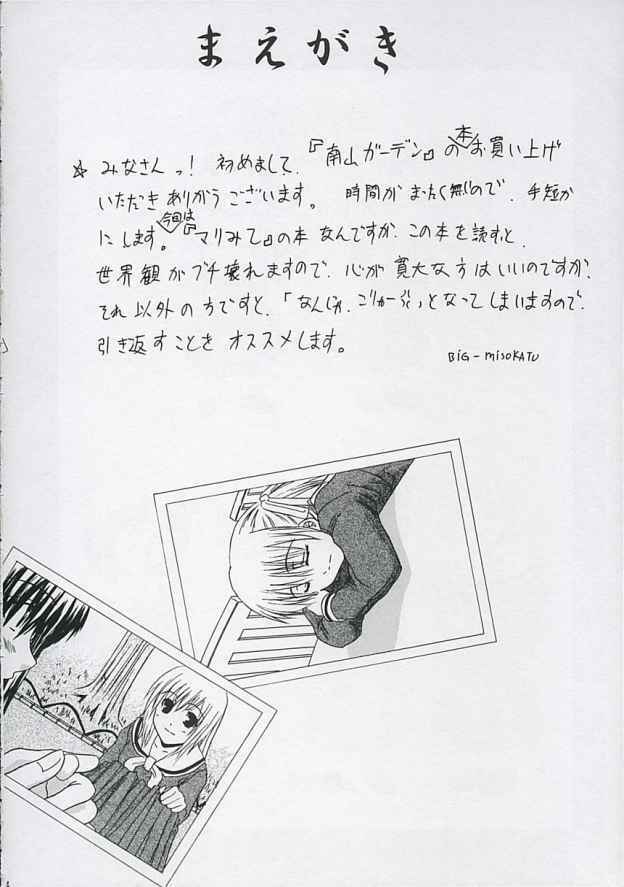 まえがき
☆ みなさんっ! 初めまして、『南山ガーデン』の本お買い上げ
いただきありがうございます。 時間がまったく無いので、手短か
にします。今回は『マリみて』の本なんですが、この本を読すと、
世界観がブチ壊れますので、心が寛大な方はいいのですが、
それ以外の方ですと、「なんじゃ、こりゃー」となってしまいますので、
引き返すことをオススメします。
BiG-misoKATU